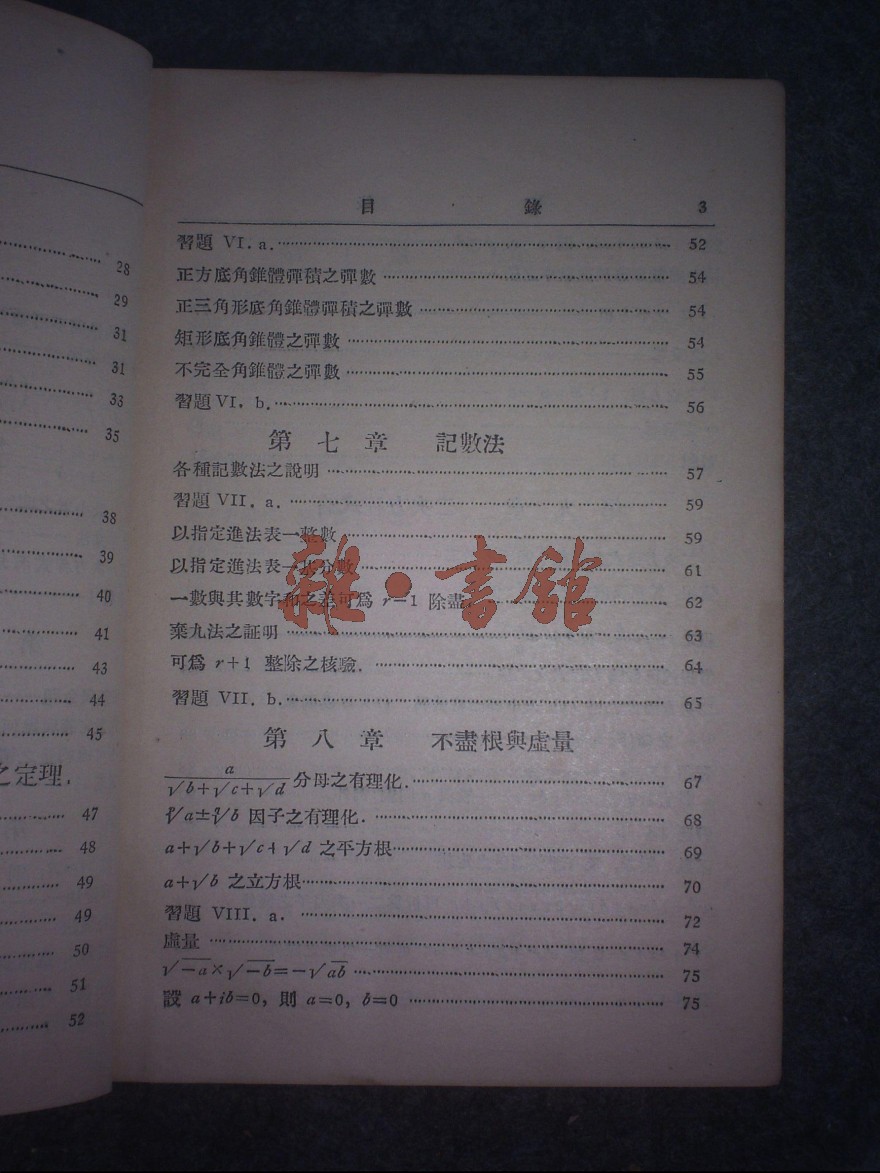 28
29
31
31
33
35
38
39
40
41
43
44
45
之定理.
47
48
49
49
50
51
52
目 錄 3
習題 VI. a. 52
正方底角錐體彈積之彈數 54
正三角形底角錐體彈積之彈數 54
矩形底角錐體之彈數 54
不完全角錐體之彈數 55
習題 VI. b. 56
第七章 記數法
各種記數法之說明 57
習題 VII. a. 59
以指定進法表一整數 59
以指定進法表一 分數 61
一數與其數字和之差可爲 r−1 除盡 62
棄九法之証明 63
可爲 r+1 整除之核驗. 64
習題 VII. b. 65
第八章 不盡根與虛量
a/(√b+√c+√d) 分母之有理化. 67
ᵖ√a±ᑫ√b 因子之有理化. 68
a+√b+√c+√d 之平方根 69
a+√b 之立方根 70
習題 VIII. a. 72
虛量 74
√−a×√−b=−√ab 75
設 a+ib=0, 則 a=0, b=0 75
雜·書館